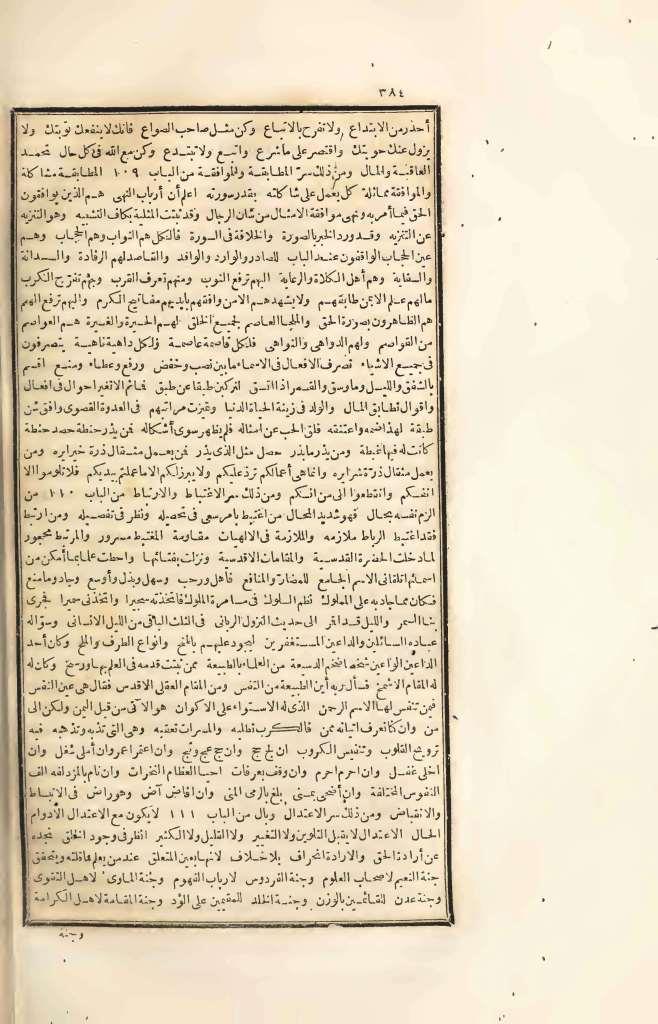 ٣٨٤
أحذر من الابتداع ولا تفرح بالاتباع وكن مثل صاحب الصواع فانك لا ينفعك توبتك ولا
يزول عنك حوبتك واقتصر على ما شرع واتبع ولا تبتدع وكن مع الله فى كل حال تحمد
العاقبة والمآل ومن ذلك سر المطابقة والموافقة من الباب ١٠٩ المطابقة مشاكلة
والموافقة مماثلة كل يعمل على شاكلته بقدر سورته اعلم أن أرباب النهى هم الذين يوافقون
الحق فيما أمر به ونهى موافقة الامثال من شان الرجال وقد ثبتت المثلية بكاف التشبيه وهو التنزيه
عن التنزيه وقد ورد الخبر بالصورة والخلافة فى السورة فالكل هم النواب وهم الحجاب وهم
عين الحجاب الواقفون عند الباب للصادر والوارد والوافد والقاصد لهم الرفادة والسدانة
والسقاية وهم أهل الكلاءة والرعاية اليهم ترفع النوب ومنهم تعرف القرب وبهم تفتريج الكرب
مالهم علم الا بمن طابقهم ولا يشهدهم الا من وافقهم بايديهم مفاتيح الكرم واليهم ترفع الهمم
هم الظاهرون بصورة الحق والملجأ العاصم لجميع الخلق لهم الحيرة والغيرة هم العواصم
من القواصم ولهم الدواهى والنواهى فلكل قاصمة عاصمة ولكل داهية ناهية يتصرفون
فى جميع الاشياء تصرف الافعال فى الاسماء ما بين نصب وخفض ورفع وعطاء ومنع اقسم
بالشفق والليل وما وسق والقمر اذا اتسق لتركبن طبقا عن طبق فما ثم الا تغير احوال فى افعال
واقوال تطابق المال والولد فى زينة الحياة الدنيا وتميزت مراتبهم فى العدوة القصوى وافق شن
طبقة لهذا ضمه واعتنقه فلق الحب عن أمثاله فلم يظهر سوى أشكاله فمن يذر حنطة حصد حنطة
كانت له فيها غبطة ومن بذر ما بذر حصل مثل الذى بذر فمن يعمل مثقال ذرة خيرا يره ومن
يعمل مثقال ذرة شرا يره وانما هى أعمالكم ترد عليكم ولا يبرز لكم الا ما عملتم بيديكم فلا تلوموا الا
انفسكم وانقطعوا الى من أنسكم ومن ذلك سر الاغتباط والارتباط من الباب ١١٠ من
الزم نفسه بحال فهو شديد المحال من اغتبط بامر سعى فى تحصيله ونظر فى تفصيله ومن ارتبط
فقد اغتبط الرباط ملازمه والملازمة فى الالهيات مقاومة المغتبط مسرور والمرتبط محجور
لما دخلت الحضرة القدسية والمقامات الاقدسية ونزلت بفنائها واحطت علما بما أمكن من
اسمائها تلقانى الاسم الجامع للمضار والمنافع فأهل ورحب وسهل وبذل وأوسع وجاد وما منع
فكان مما جاد به على المملوك نظم السلوك فى مسامرة الملوك فاتخذته سجيرا واتخذنى سميرا فجرى
بنا السمر والليل قد اقر الى حديث النزول الربانى فى الثلث الباقى من الليل الانسانى وسؤاله
عباده السائلين والداعين المستغفرين ليجود عليهم بالمنح وانواع الطرف والملح وكان أحد
الداعين الواعين شخصا ضخم الدسيعة من العلماء بالطبيعة ممن ثبتت قدمه فى العلم بها ورسخ وكان له
له المقام الاشمخ فسأل ربه أين الطبيعة من النفس ومن المقام العقلى الاقدس فقال هى عين النفس
فمن تنفس لها الاسم الرحمن الذى له الاستواء على الاكوان هو الآتى من قبل اليمن ولكن الى
من وان كنا نعرف اتيانه ممن فالكرب تطلبه والمسرات تعقبه وهى التى تذبه وتذهبه فيه
ترويح القلوب وتنفيس الكروب ان لج لج وان حج عج وثج وان اعتمر اعمر وان أملى شغل وان
اخلى غفل وان احرم احرم وان وقف بعرفات احيا العظام النخرات وان نام بالمزدلفه الف
النفوس المختلفة وان أضحى بمنى بلغ بالرمى المنى وان افاض آض وهو راض فى الانبساط
والانقباض ومن ذلك سر الاعتدال وبال من الباب ١١١ لا يكون مع الاعتدال الادوام
الحال الاعتدال لا يقبل التلوين ولا التغيير ولا القليل ولا الكثير انظر فى وجود الخلق تجده
عن أرادة الحق والارادة انحراف بلا خلاف لانها بعين المتعلق عند من يعلم ما قلته ويتحقق
جنة النعيم لاصحاب العلوم وجنة الفردوس لارباب الفهوم وجنة الماوى لاهل التقوى
وجنة عدن للقائمين بالوزن وجنة الخلد للمقيمين على الود وجنة المقامة لاهل الكرامة
وجنة